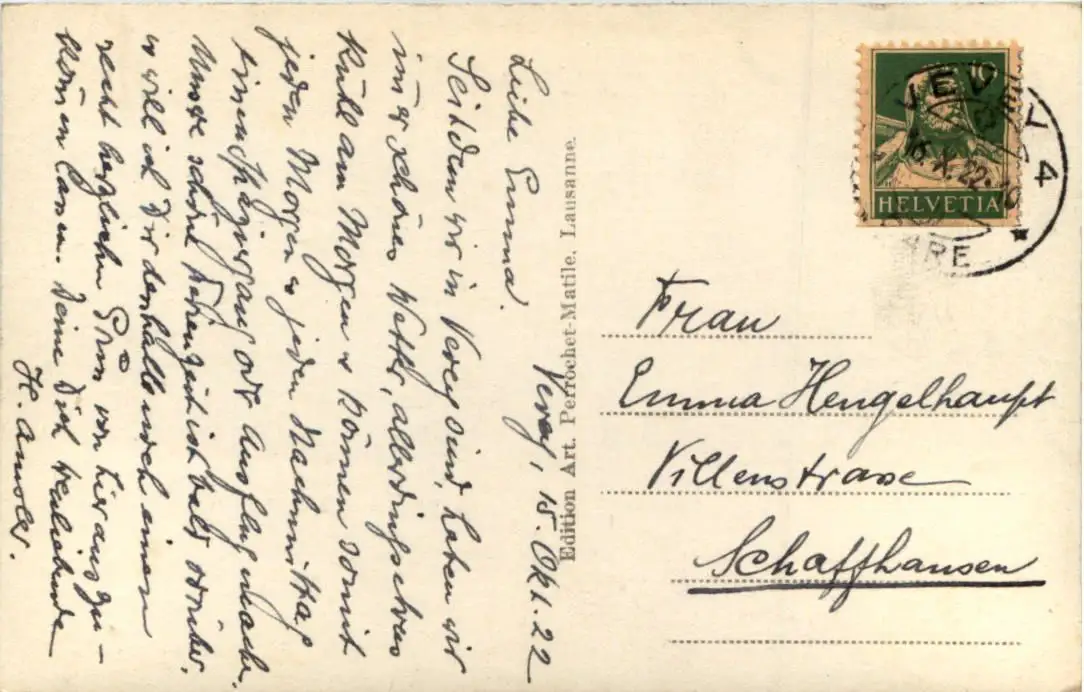 Vevey, 15. Okt. 22
Liebe Emma.
Seitdem wir in Vevey sind, haben wir
immer schönes Wetter, allerdings etwas
kühl am Morgen & können somit
jeden Morgen & jeden Nachmittag
einen Spaziergang oder Ausflug machen.
Unsere schöne Ferienzeit ist bald vorüber,
& will ich Dir deshalb noch einen
recht herzlichen Gruss von hier aus zu-
kommen lassen. Deine Dich
H.
Edition Art. Perrochet-Matile, Lausanne
10
HELVETIA
VEVEY
4
16.X.22
GARE
Frau
Emma Hengelhaupt
Villenstrasse
Schaffhausen